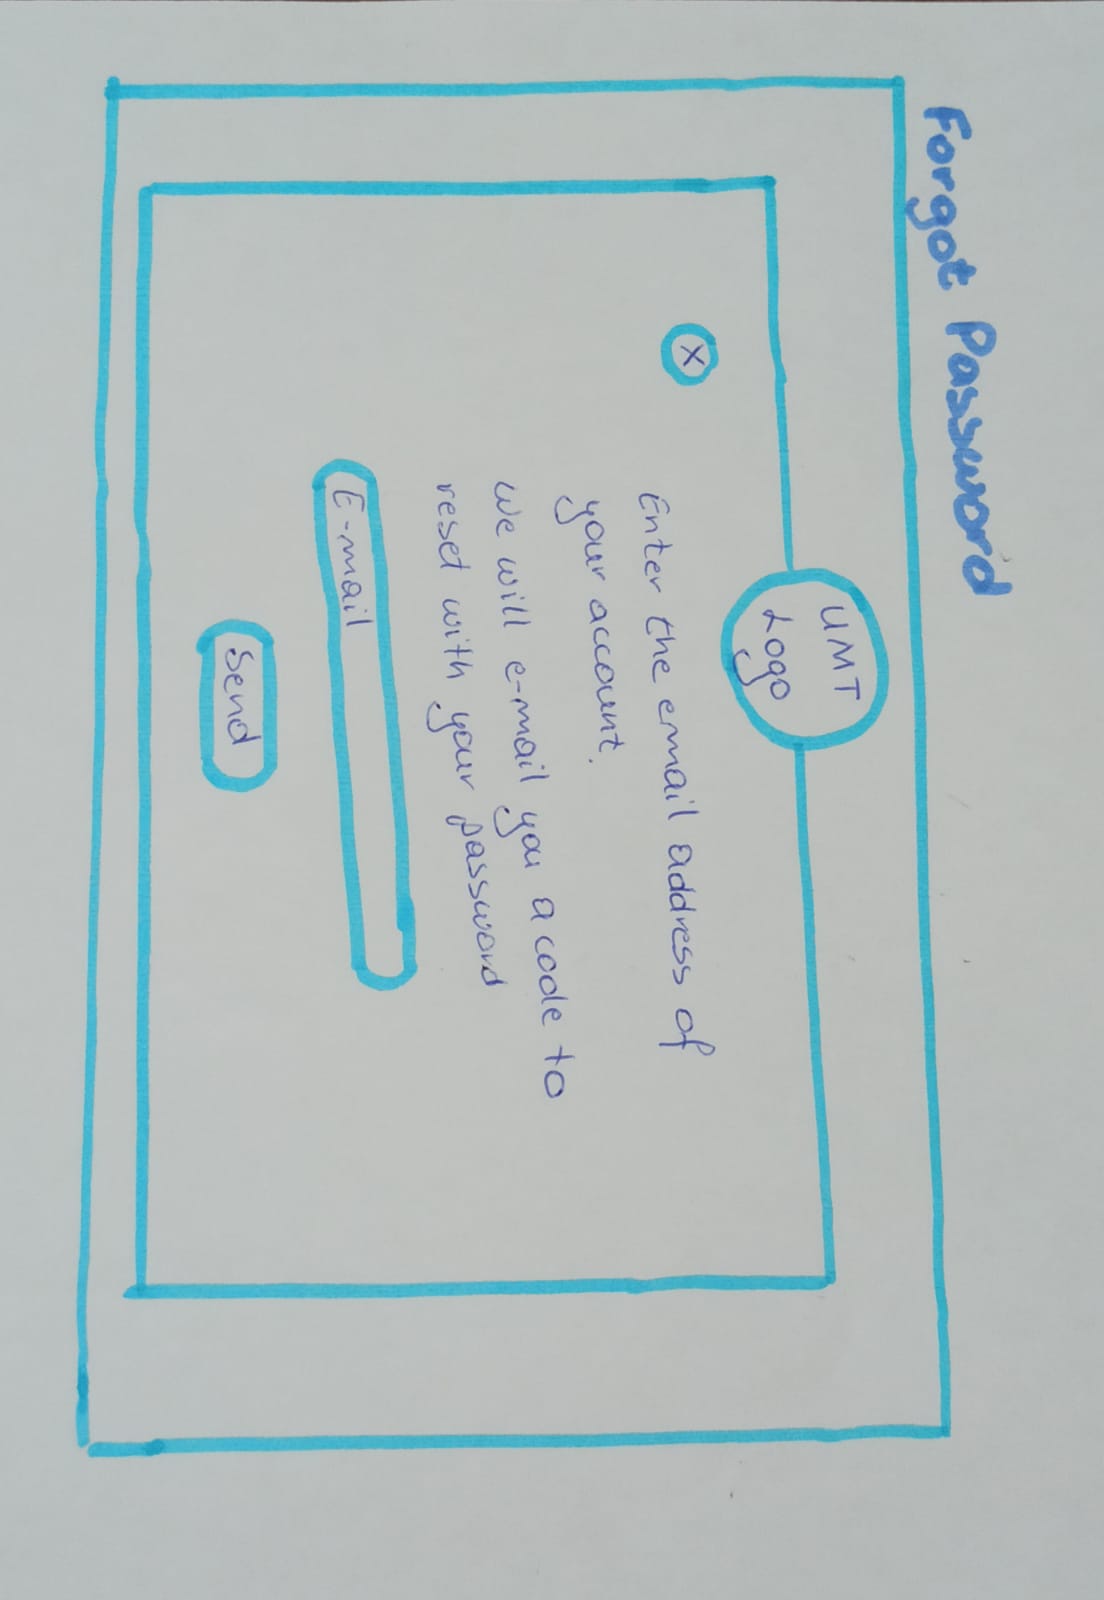 Forgot Password
UMT
Logo
X
Enter the email address of
your account.
We will e-mail you a code to
reset with your password
E-mail
Send